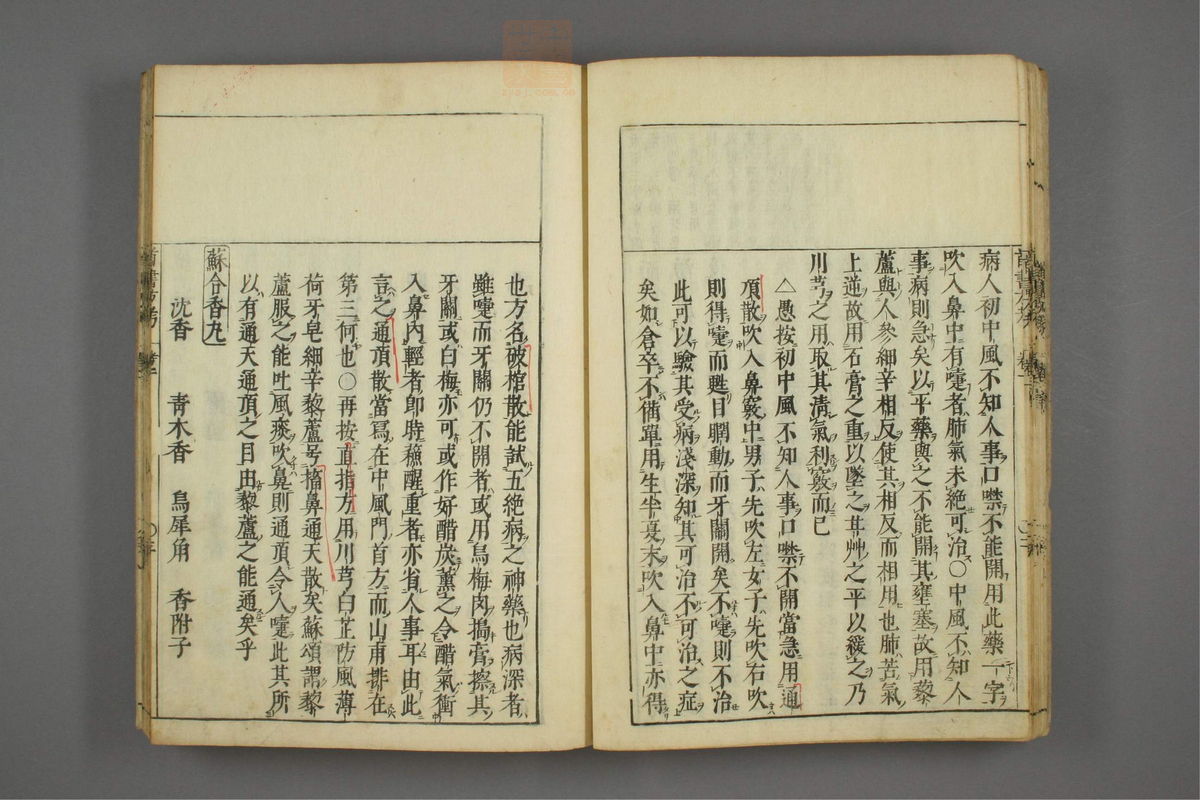 病人初中風不知人事口噤不能開用此藥一字
吹入鼻中有嚏者肺氣未絶可治○中風不知人
事病則急矣以平藥與之不能開其壅塞故用藜
蘆與人參細辛相反使其相反而相用也肺苦氣
上逆故用石膏之重以墜之甘艸之平以緩之乃
川芎之用取其淸氣利竅而已
△愚按初中風不知人事口噤不開當急用通
頂散吹入鼻竅中男子先吹左女子先吹右吹
則得嚏而甦目瞤動而牙關開矣不嚏則不治
此可以驗其受病淺深知其可治不可治之症
矣如倉卒不備單用生半夏末吹入鼻中亦得
也方名破棺散能試五絶病之神藥也病深者
雖嚏而牙關仍不開者或用烏梅肉搗膏擦其
牙關或白梅亦可或作好醋炭薰之令醋氣衝
入鼻內輕者卽時蘇醒重者亦省人事耳由此
言之通頂散當爲在中風門首方而山甫排在
第三何也○再按直指方用川芎白芷防風薄
荷牙皂細辛藜蘆号搐鼻通天散矣蘇頌謂藜
蘆服之能吐風痰吹鼻則通頂令人嚏此其所
以有通天通頂之目由藜蘆之能通矣乎
蘇合香丸
沈香 靑木香 烏犀角 香附子